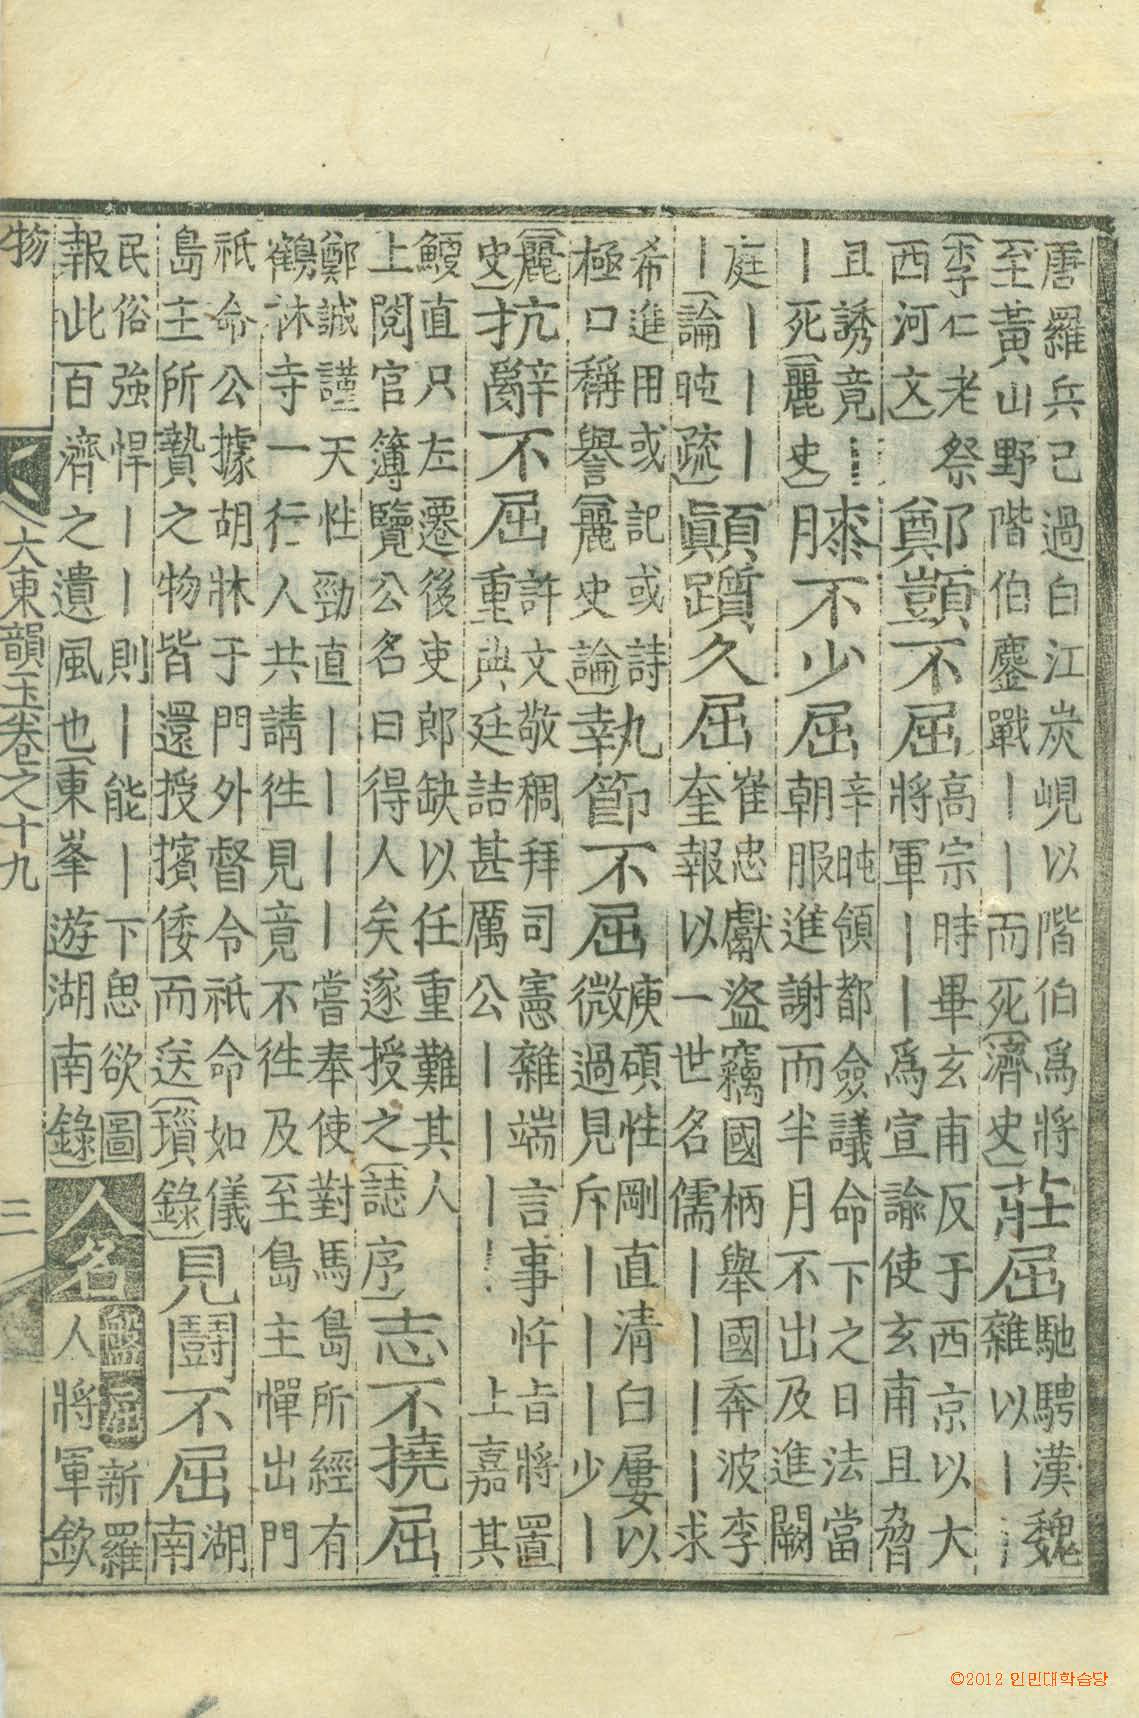 唐羅兵已過白江炭峴以階伯爲將
至黃山野階伯鏖戰丨丨而死(濟史)
莊屈
馳騁漢魏
雜以丨丨
(李仁老祭
西河文)
鄭顗不屈
高宗時畢玄甫反于西京以大
將軍丨丨爲宣諭使玄甫且脅
且誘竟丨丨
丨死(麗史)
膝不少屈
辛旽領都僉議命下之日法當
朝服進謝而半月不出及進闕
庭丨丨丨
丨(論旽疏)
顚躓久屈
崔忠獻盜竊國柄舉國奔波李
奎報以一世名儒丨丨丨丨求
希進用或記或詩
極口稱譽(麗史論)
執節不屈
庾碩性剛直淸白屢以
微過見斥丨丨丨少丨
(麗
史)
抗辭不屈
許文敬稠拜司憲雜端言事忤旨將置
重典廷詰甚厲公丨丨丨丨上嘉其
鯁直只左遷後吏郎缺以任重難其人
上閱官簿覽公名曰得人矣遂授之(誌序)
志不撓屈
鄭誠謹天性勁直丨丨丨丨嘗奉使對馬島所經有
鶴林寺一行人共請徃見竟不徃及至島主憚出門
祇命公據胡牀于門外督令祇命如儀
島主所贄之物皆還授擯倭而送(瑣錄)
見鬪不屈
湖
南
民俗強悍丨丨則丨能丨下思欲圖
報此百濟之遺風也(東峯遊湖南錄)
人名
盤屈
新羅
人將軍欽
物
大東韻玉卷之十九
三
©2012 인민대학습당